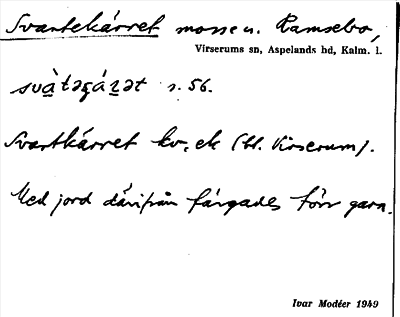 Svartekärret mosse u. Ramsebo,
Virserums sn, Aspelands hd, Kalm. l.
s. 56.
Svartkärret kv. ek (bl. Virserum).
Med jord därifrån färgades förr garn.
Ivar Modéer 1949